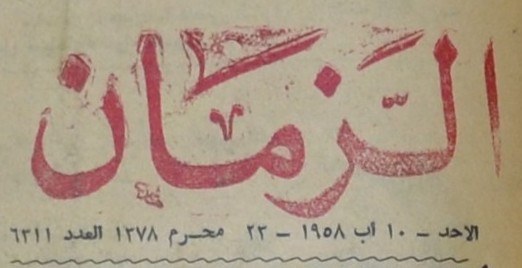 الزمان
الاحد - ١٠ آب ١٩٥٨ - ٢٣ محرم ١٣٧٨ العدد ٦٣١١